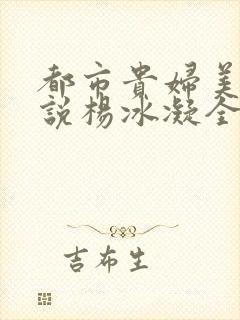 都市貴婦美
說楊冰凝全
吉布生